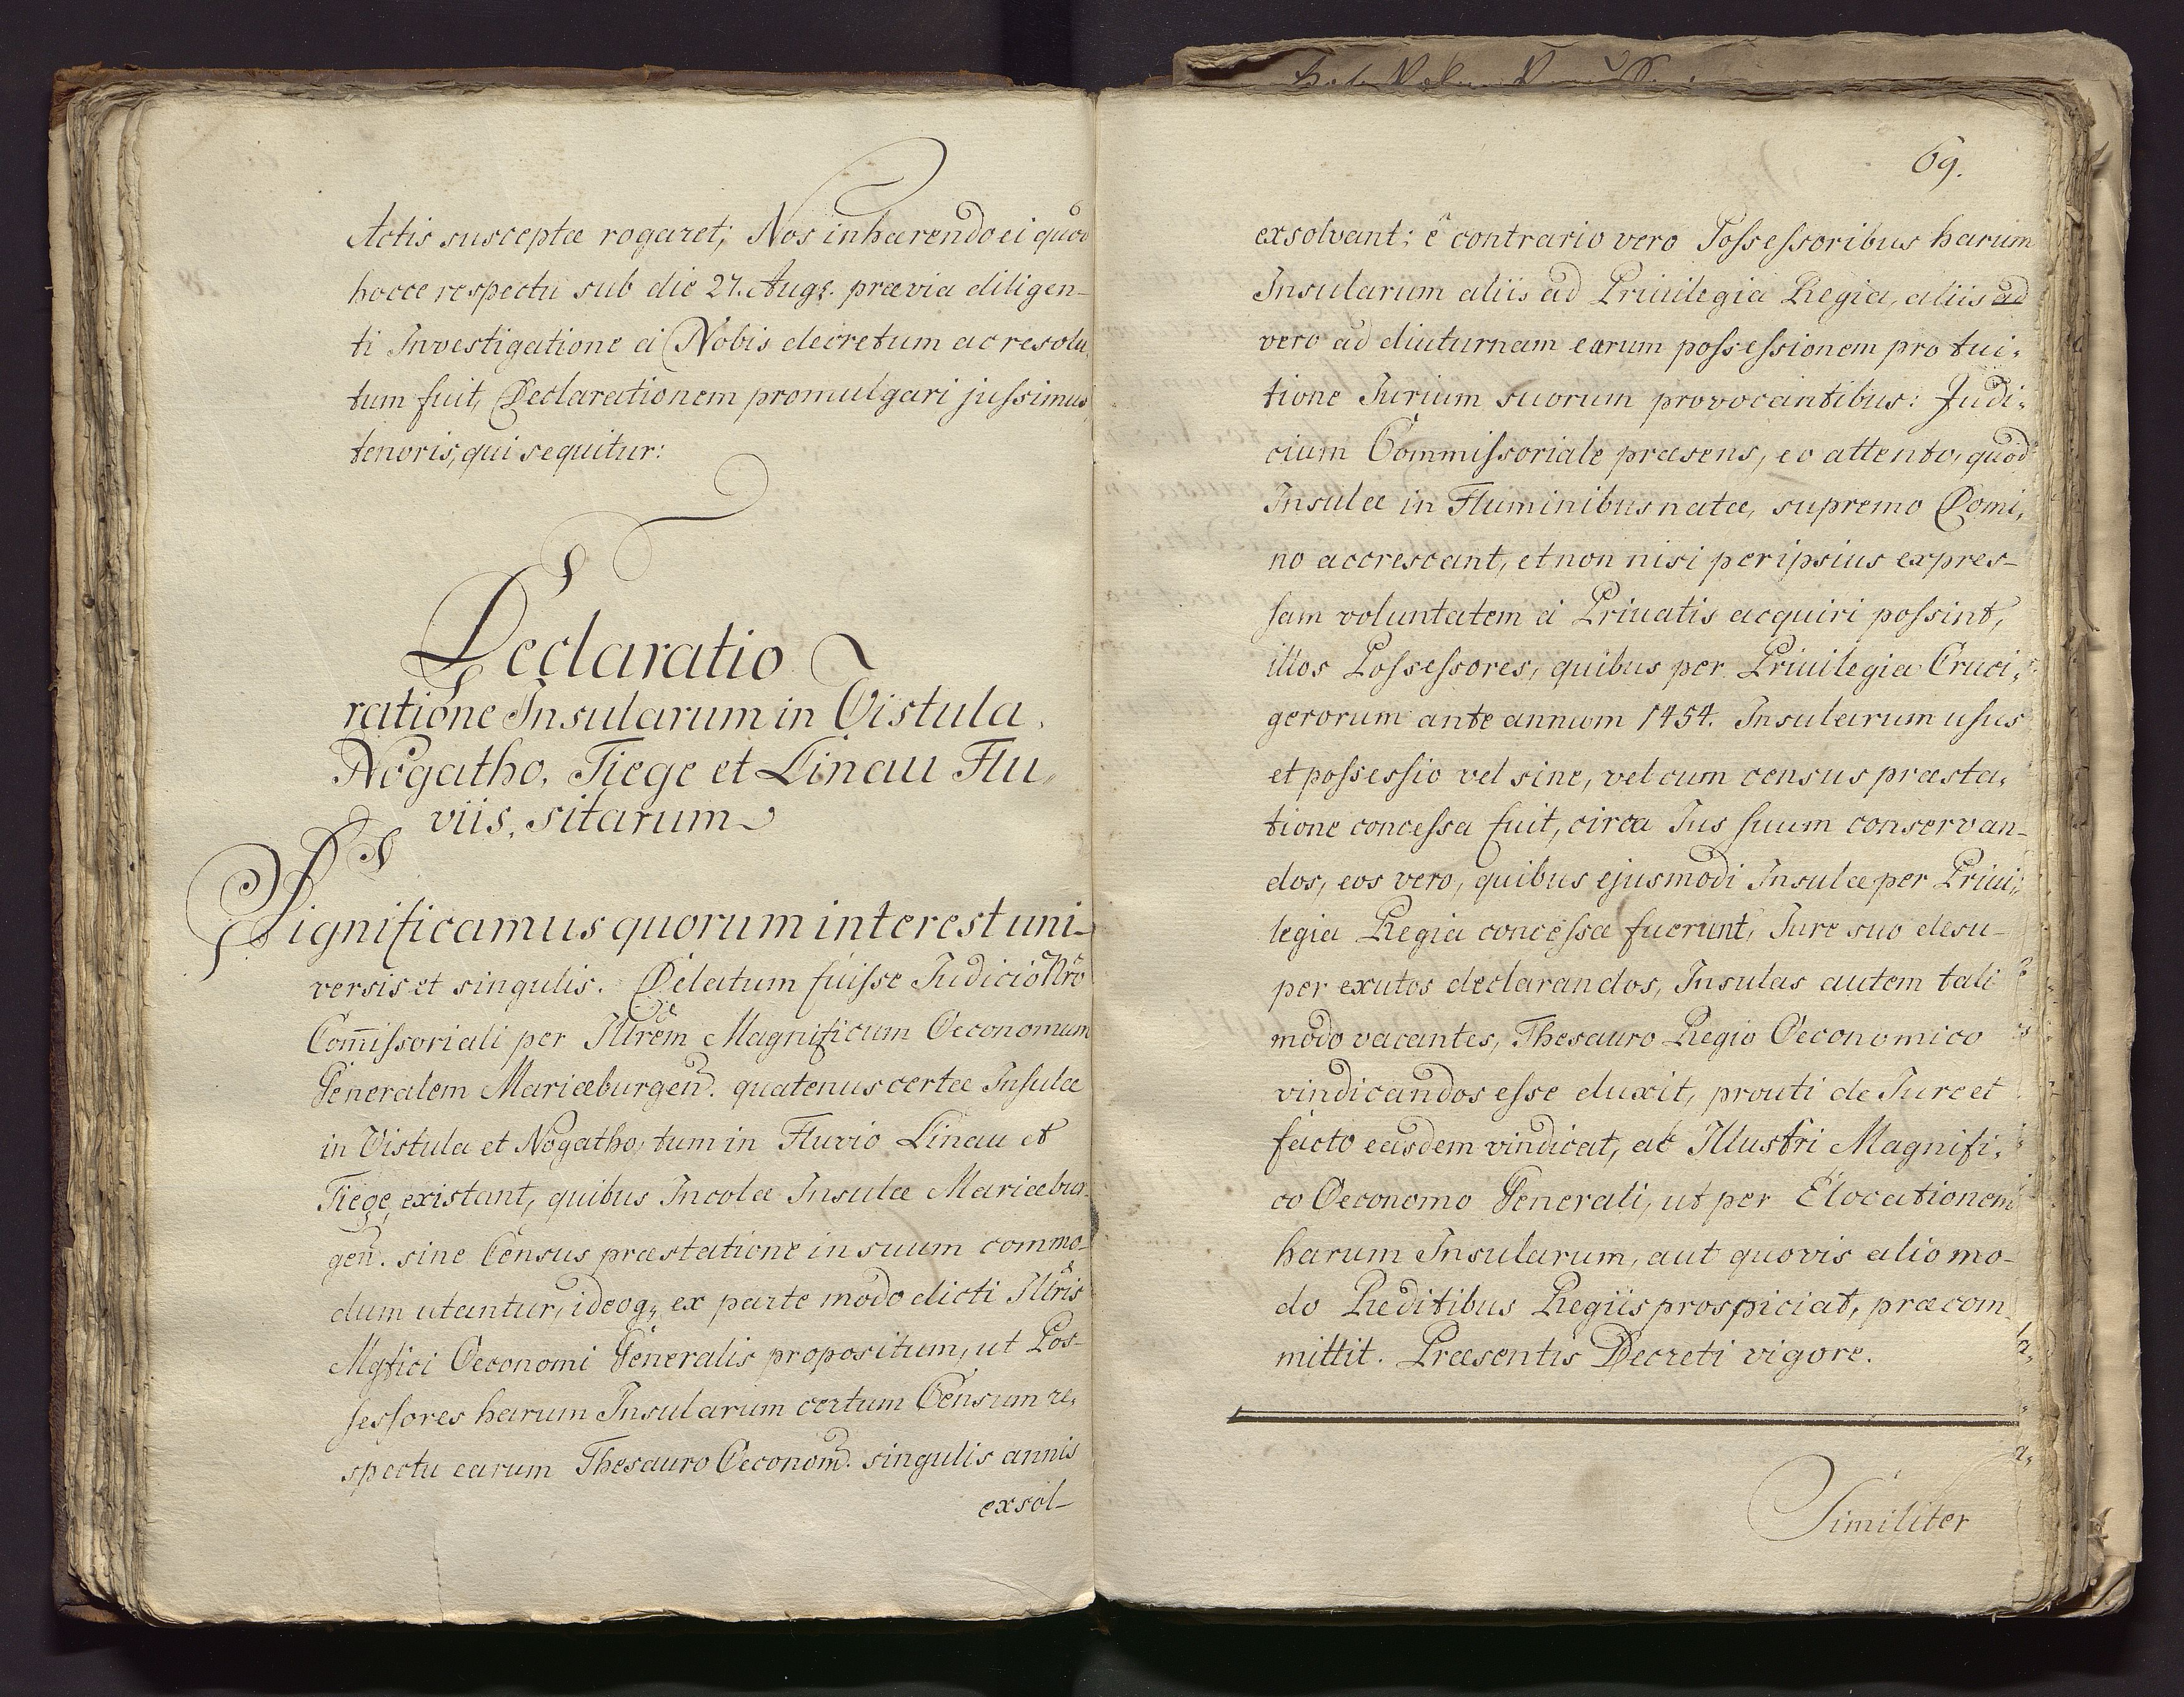 Actis susceptæ rogaret; Nos inhærendo ei quod
hocce respectu sub die 27. Augs. prævia diligen-
ti Investigatione a Nobis decretum ac resolu,
tum fuit, Declarationem promulgari jussimus
tenoris, qui sequitur:
Declaratio
ratione Insularum in Vistula,
Nogatho, Tiege et Linau Flu,,
viis, sitarum
Significamus quorum interest uni-
versis et singulis. Delatum fuisse Judicio Nrô
Com̄issoriali per Illrem Magnificum Oeconomum
Generalem Mariæburgen. quatenus certæ Insulæ
in Vistula et Nogatho, tum in Fluvio Linau et
Tiege, existant, quibus Incolæ Insulæ Mariæbur-
gen. sine Census præstatione in suum commo-
dum utantur, ideoq; ex parte modo dicti Illris
Mgfici Oeconomi Generalis propositum, ut Pos-
sessores harum Insularum certum Censum re,
spectu earum Thesauro Oeconom. singulis annis
exsol-
69.
exsolvant; ê contrario vero Possessoribus harum
Insularum aliis ad Priuilegia Regia, aliis ad
vero ad diuturnam earum possessionem pro tui,
tione Jurium suorum provocantibus: Judi,
cium Commissoriale præsens, eo attento, quod
Insulæ in Fluminibus natæ, supremo Domi,
no accrescant, et non nisi per ipsius expres-
sam voluntatem a Priuatis acquiri possint,
illos Possessores, quibus per Priuilegia Cruci,
gerorum ante annum 1454. Insularum usus
et possessio vel sine, vel cum census præsta,
tione concessa fuit, circa Jus suum conservan-
dos, eos vero, quibus ejusmodi Insulæ per Priui,
legia Regia concessæ fuerunt, Jure suo desu-
per exutos declarandos, Insulas autem tali
modo vacantes, Thesauro Regio Oeconomico
vindicandos esse duxit, prouti de Jure et
facto easdem vindicat, ac Illustri Magnifi,
co Oeconomo Generali, ut per Elocationem
harum Insularum, aut quovis alio mo-
do Reditibus Regiis prospiciat, præcom
mittit. Præsentis Decreti vigore.
Similiter